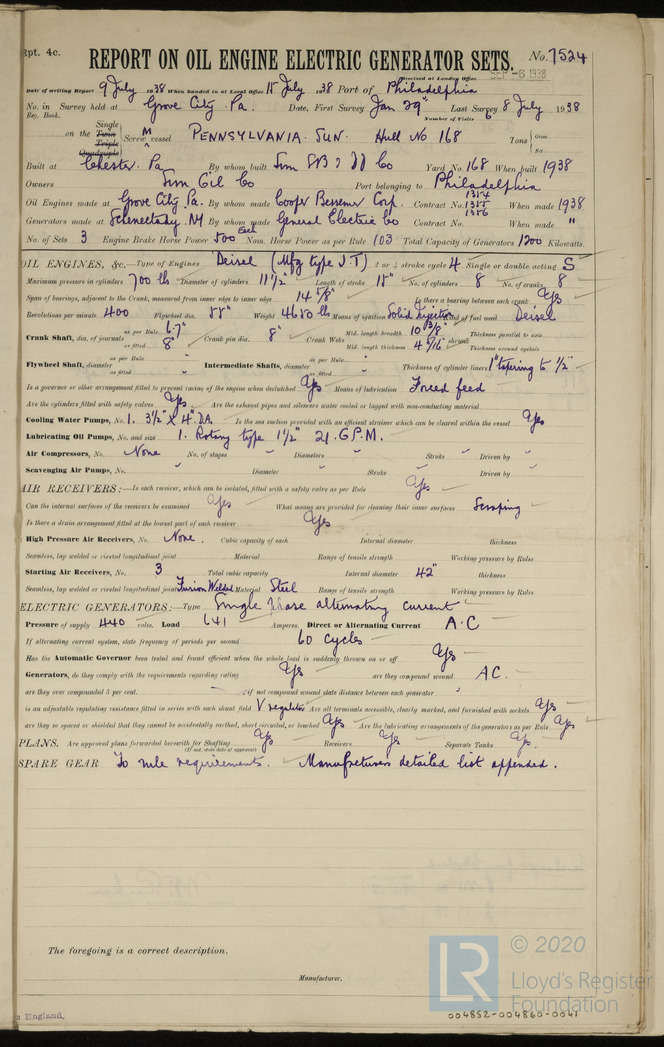 Rpt. 4c.
REPORT ON OIL ENGINE ELECTRIC GENERATOR SETS. No. 7524
Received at London Office SEP -6 1938
Date of writing Report 9 July 1938 When handed in at Local Office 15 July 1938 Port of Philadelphia
No. in Survey held at Grove City Pa. Date, First Survey Jan 29th Last Survey 8 July 1938
Reg. Book. Number of Visits 6
on the Single Twin Triple Quadruple Screw M vessel PENNSYLVANIA SUN. Hull No 168 Tons Gross Net
Built at Chester. Pa By whom built Sun SB & DD Co Yard No. 168 When built 1938
Owners Sun Oil Co Port belonging to Philadelphia
Oil Engines made at Grove City Pa. By whom made Cooper Bessemer Corp. Contract No. 1354 1355 1356 When made 1938
Generators made at Schenectady NY By whom made General Electric Co Contract No. When made "
No. of Sets 3 Engine Brake Horse Power 500 Each Nom. Horse Power as per Rule 103 Total Capacity of Generators 1200 Kilowatts.
OIL ENGINES, &c.—Type of Engines Deisel (Mfg type JT) 2 or 4 stroke cycle 4 Single or double acting S
Maximum pressure in cylinders 700 lbs Diameter of cylinders 11 1/2" Length of stroke 15" No. of cylinders 8 No. of cranks 8
Span of bearings, adjacent to the Crank, measured from inner edge to inner edge 14 5/8" Is there a bearing between each crank Yes
Revolutions per minute 400 Flywheel dia. 55" Weight 4650 lbs Means of ignition Solid Injection Kind of fuel used Deisel
Crank Shaft, dia. of journals as per Rule 6.7" as fitted 8" Crank pin dia. 8" Crank Webs Mid. length breadth 10 3/8" Mid. length thickness 4 5/16" shrunk Thickness parallel to axis Thickness around eyehole
Flywheel Shaft, diameter as per Rule as fitted Intermediate Shafts, diameter as per Rule as fitted Thickness of cylinder liners 1" tapering to 1/2"
Is a governor or other arrangement fitted to prevent racing of the engine when declutched Yes Means of lubrication Forced feed
Are the cylinders fitted with safety valves Yes. Are the exhaust pipes and silencers water cooled or lagged with non-conducting material
Cooling Water Pumps, No. 1. 3 1/2" X 4" D.A. Is the sea suction provided with an efficient strainer which can be cleared within the vessel Yes
Lubricating Oil Pumps, No. and size 1. Rotary type 1 1/2" 21. G.P.M.
Air Compressors, No. None No. of stages Diameters Stroke Driven by
Scavenging Air Pumps, No. Diameter Stroke Driven by
AIR RECEIVERS:—Is each receiver, which can be isolated, fitted with a safety valve as per Rule Yes
Can the internal surfaces of the receivers be examined Yes What means are provided for cleaning their inner surfaces Scraping
Is there a drain arrangement fitted at the lowest part of each receiver Yes
High Pressure Air Receivers, No. None. Cubic capacity of each Internal diameter thickness
Seamless, lap welded or riveted longitudinal joint Material Range of tensile strength Working pressure by Rules
Starting Air Receivers, No. 3 Total cubic capacity Internal diameter 42" thickness
Seamless, lap welded or riveted longitudinal joint Fusion Welded Material Steel Range of tensile strength Working pressure by Rules
ELECTRIC GENERATORS:—Type Single Phase alternating current
Pressure of supply 440 volts. Load 641 Amperes. Direct or Alternating Current A.C
If alternating current system, state frequency of periods per second 60 Cycles
Has the Automatic Governor been tested and found efficient when the whole load is suddenly thrown on or off Yes
Generators, do they comply with the requirements regarding rating Yes are they compound wound A.C.
are they over compounded 5 per cent. if not compound wound state distance between each generator
is an adjustable regulating resistance fitted in series with each shunt field V regulator Are all terminals accessible, clearly marked, and furnished with sockets Yes
are they so spaced or shielded that they cannot be accidentally earthed, short circuited, or touched Yes Are the lubricating arrangements of the generators as per Rule Yes
PLANS. Are approved plans forwarded herewith for Shafting Yes Receivers Yes Separate Tanks Yes.
(If not, state date of approval)
SPARE GEAR To rule requirements. Manufacturers detailed list appended.
The foregoing is a correct description,
Manufacturer.
England.
LR © 2020
Lloyd's Register
Foundation
004852-004860-0041